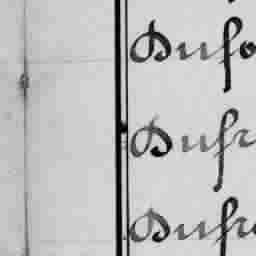 Dufo
Dufr
Dufr